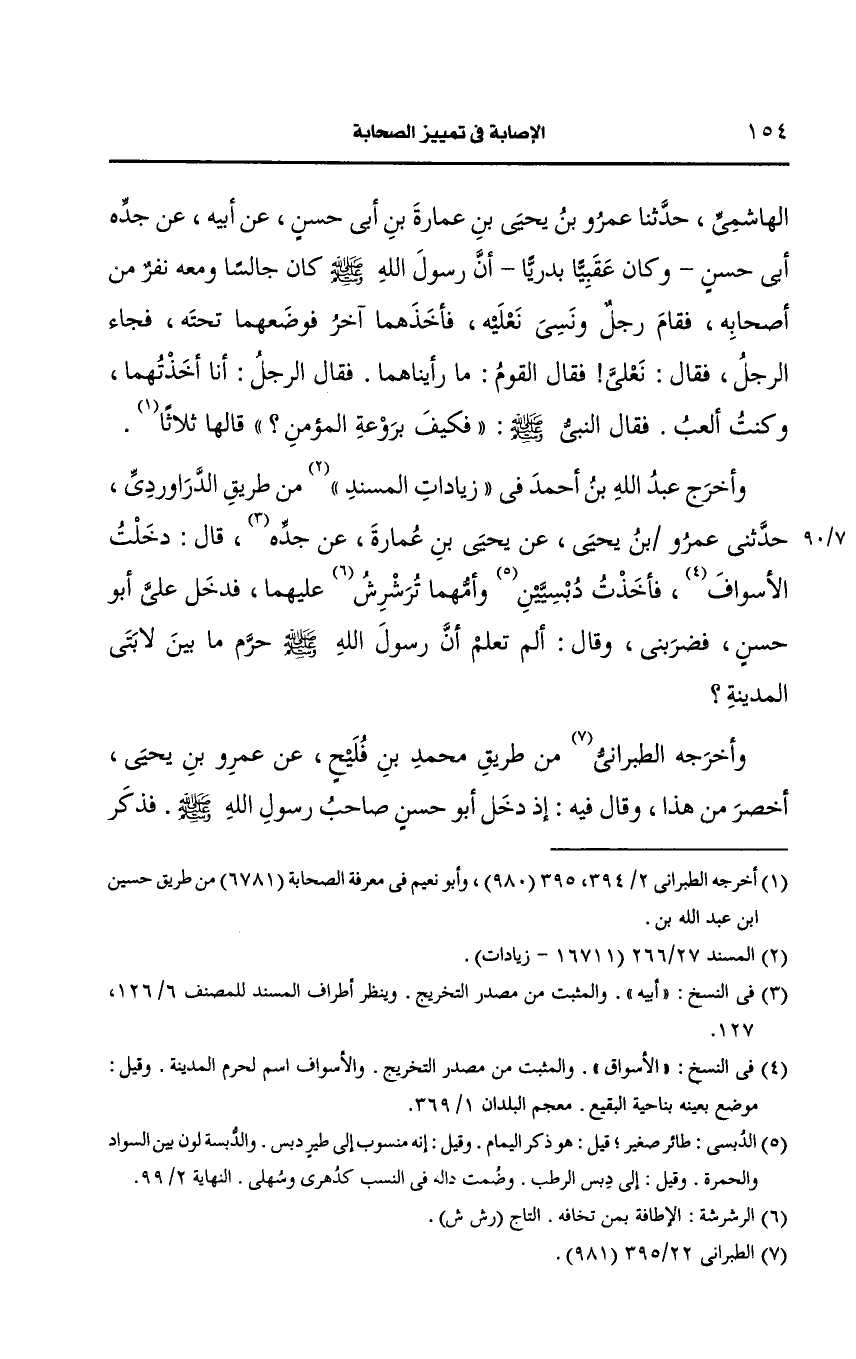 ١٥٤ الإصابة فى تمييز الصحابة
الهاشمِىِّ ، حدَّثنا عمرُو بنُ يحيَى بنِ عمارةَ بنِ أبى حسنٍ ، عن أبيه ، عن جدِّه
أبى حسنٍ - وكان عَقَبِيًّا بدريًّا - أنَّ رسولَ اللهِ ﷺ كان جالسًا ومعه نفرٌ من
أصحابِه ، فقامَ رجلٌ ونَسِىَ نَعْلَيْه ، فأخَذَهما آخرُ فوضَعهما تحتَه ، فجاء
الرجلُ ، فقال : نَعْلىَّ! فقال القومُ : ما رأيناهما . فقال الرجلُ : أنا أخَذْتُهما ،
وكنتُ ألعبُ . فقال النبىُّ ﷺ : « فكيفَ برَوْعةِ المؤمنِ ؟ » قالها ثلاثًا(١) .
وأخرَج عبدُ اللهِ بنُ أحمدَ فى « زياداتِ المسندِ »(٢) من طريقِ الدَّراوردِىِّ ،
٩٠/٧ حدَّثنى عمرُو /بنُ يحيَى ، عن يحيَى بنِ عُمارةَ ، عن جدِّه(٣) ، قال : دخَلْتُ
الأسوافَ(٤) ، فأخَذْتُ دُبْسِيَّيْنِ(٥) وأمُّهما تُرَشْرِشُ(٦) عليهما ، فدخَل علىَّ أبو
حسنٍ ، فضرَبنى ، وقال : ألم تعلمْ أنَّ رسولَ اللهِ ﷺ حرَّم ما بينَ لابَتَى
المدينةِ ؟
وأخرَجه الطبرانىُّ(٧) من طريقِ محمدِ بنِ فُلَيْحٍ ، عن عمرِو بنِ يحيَى ،
أخصرَ من هذا ، وقال فيه : إذ دخَل أبو حسنٍ صاحبُ رسولِ اللهِ ﷺ . فذكَر
(١) أخرجه الطبرانى ٢/ ٣٩٤، ٣٩٥ (٩٨٠) ، وأبو نعيم فى معرفة الصحابة (٦٧٨١) من طريق حسين
ابن عبد الله بن .
(٢) المسند ٢٦٦/٢٧ (١٦٧١١ - زيادات) .
(٣) فى النسخ : « أبيه » . والمثبت من مصدر التخريج . وينظر أطراف المسند للمصنف ٦/ ١٢٦،
١٢٧.
(٤) فى النسخ : « الأسواق » . والمثبت من مصدر التخريج . والأسواف اسم لحرم المدينة . وقيل :
موضع بعينه بناحية البقيع . معجم البلدان ١/ ٣٦٩.
(٥) الدُبسى : طائر صغير ؛ قيل : هو ذكر اليمام . وقيل : إنه منسوب إلى طيرٍ دبس . والدُّبسة لون بين السواد
والحمرة . وقيل : إلى دِبس الرطب . وضُمت داله فى النسب كدُهرى وسُهلى . النهاية ٢/ ٩٩.
(٦) الرشرشة : الإطافة بمن تخافه . التاج (رش ش) .
(٧) الطبرانى ٣٩٥/٢٢ (٩٨١) .